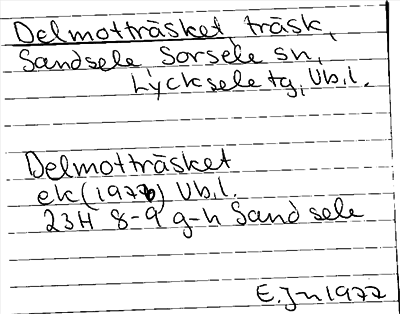 Delmotträsket, träsk,
Sandsele Sorsele sn,
Lycksele tg, Vb.l.
Delmotträsket
ek (1976) Vb.l.
23H 8-9 g-h Sandsele
E. Jn 1977